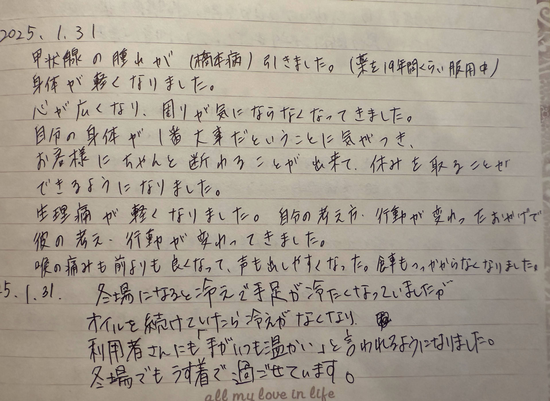 2025. 1. 31
甲状腺の腫れが(橋本病)引きました。(薬を19年間くらい服用中)
身体が軽くなりました。
心が広くなり、周りが気にならなくなってきました。
自分の身体が1番大事だということに気がつき、
お客様にちゃんと断わることが出来て、休みを取ることが
できるようになりました。
生理痛が軽くなりました。自分の考え方・行動が変わったおかげで
彼の考え・行動が変わってきました。
喉の痛みも前よりも良くなって、声も出しやすくなった。食事もつっかからなくなりました。
5. 1. 31. 冬場になると冷えで手足が冷たくなっていましたが
オイルを続けていたら冷えがなくなり
利用者さんにも「手がいつも温かい」と言われるようになりました。
冬場でもうす着で過ごせています。
all my love in life